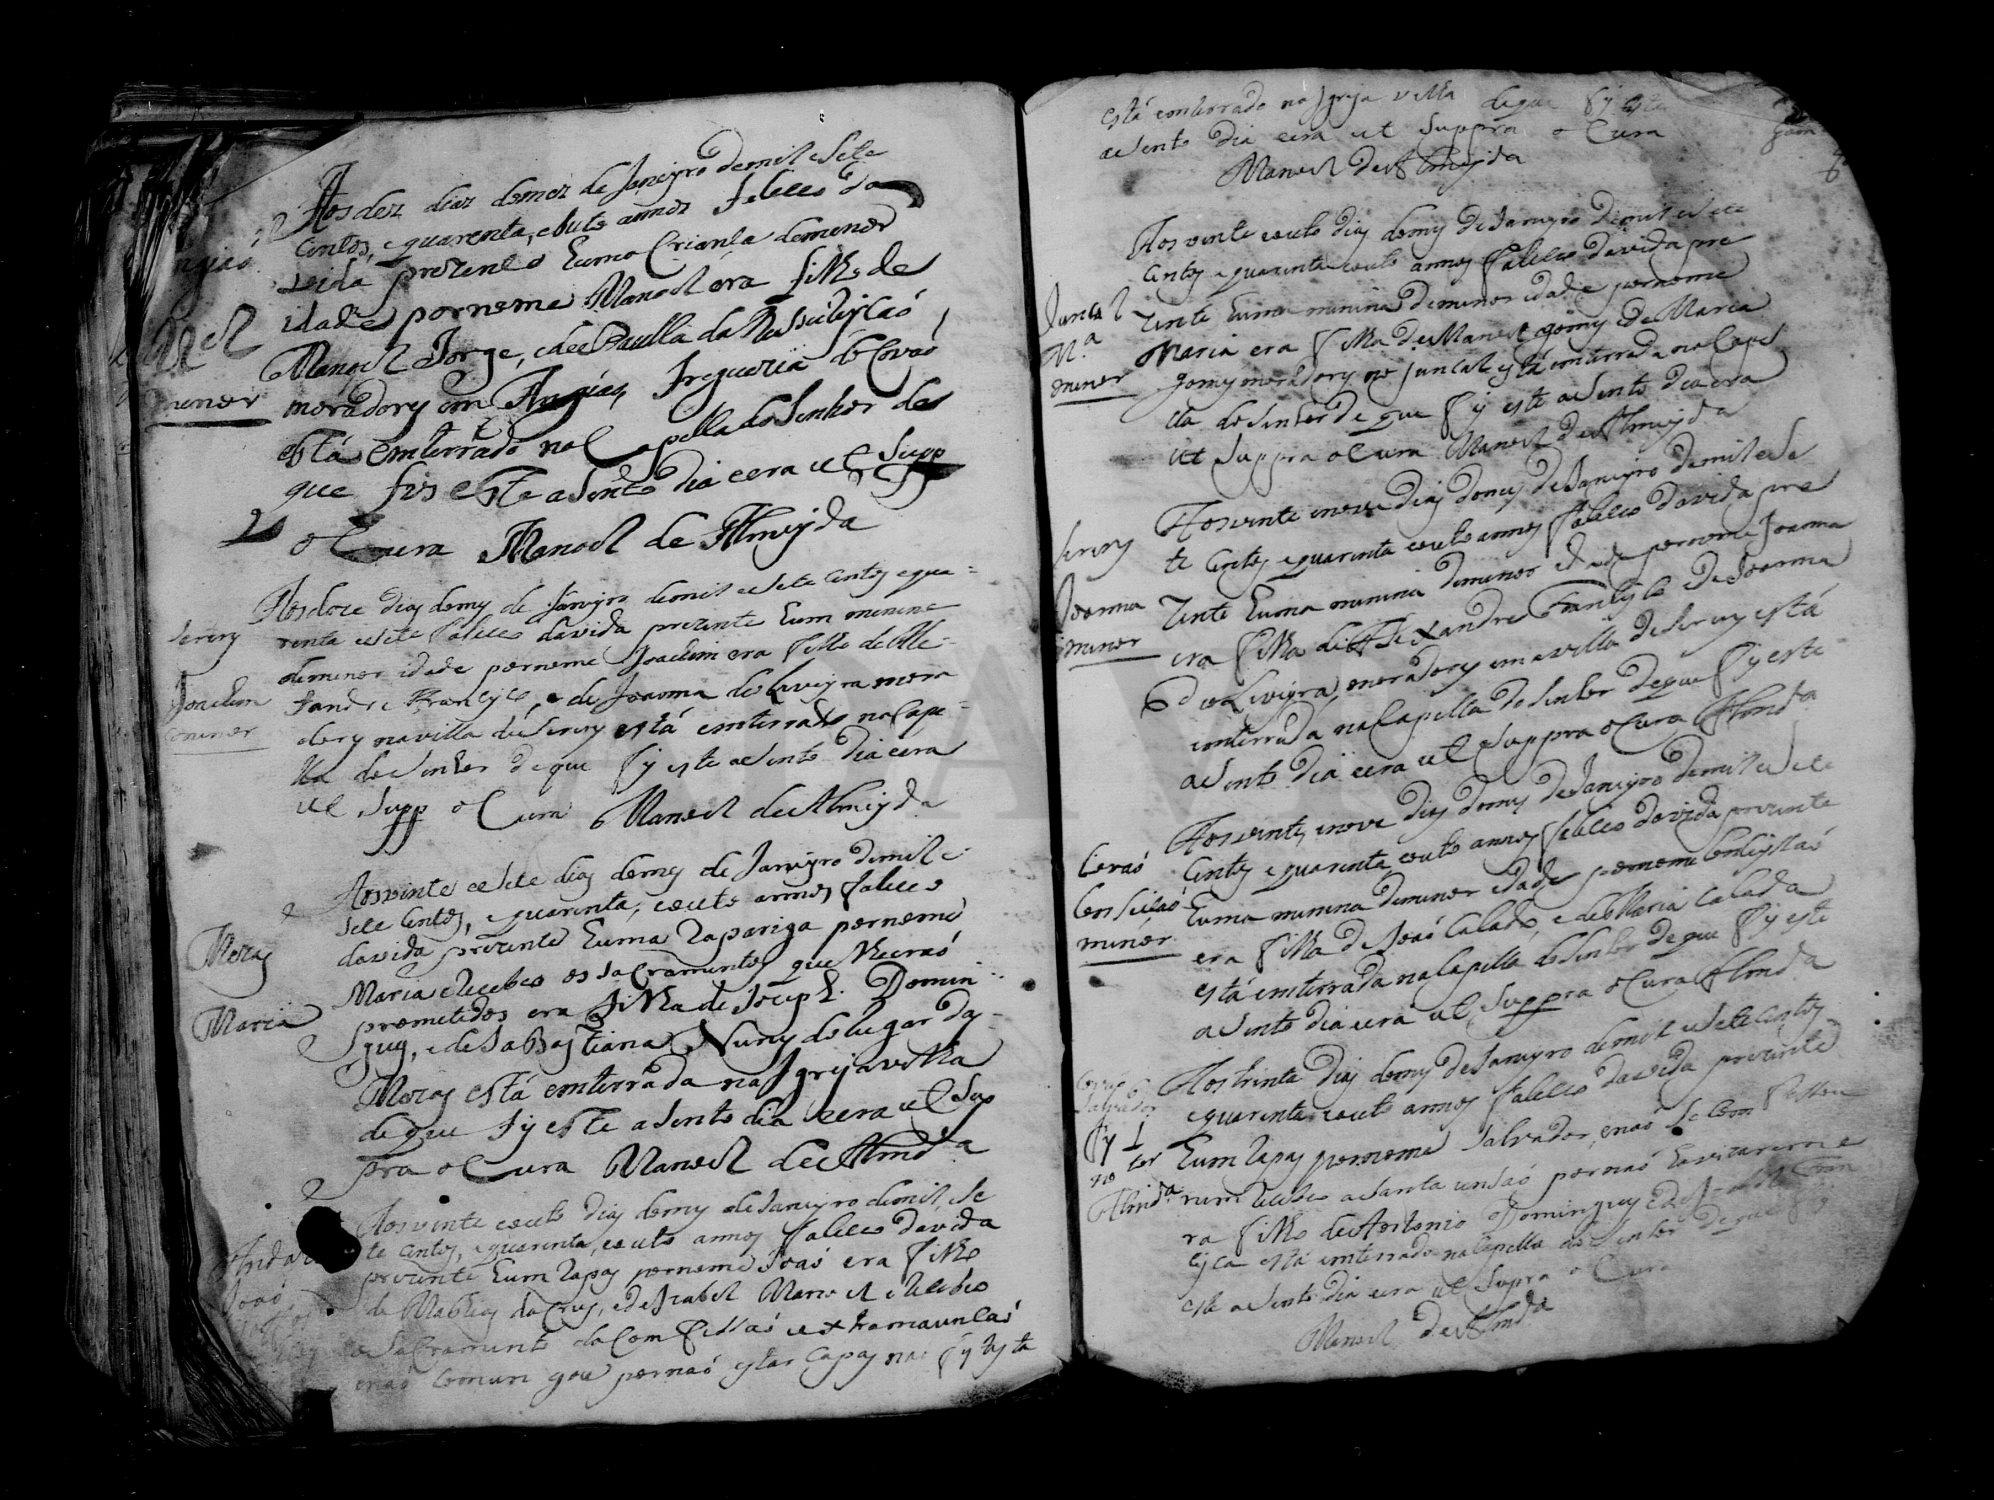 Aos dez dias do mez de Janeyro de mil e sete
centos, e quarenta, e outo annos faleceo da
vida prezente huma Criança de menor
idade por nome Manoel era filho de
Manoel Jorge, e de Paulla da Ressureyçaó
moradores em Angias, freguezia do Covaó
está emterrado na Capella do Senhor de
que fis este asento dia e era ut supp
o Cura Manoel de Almeyda
Mel
menor
Aos doze dias do mes de Janeyro de mil e sete centos e qua=
renta e sete faleceo da vida prezente hum menino
de menor idade por nome Joachim era filho de Ale=
xandre Francisco, e de Joanna de Oliveyra mora
dores na villa de Serem está emterrado na Cape=
lla do Senhor de que fis este asento dia e era
ut supp o Cura Manoel de Almeyda
Serem
Joachim
menor
Aos vinte e sete dias do mes de Janeyro de mil e
sete centos, e quarenta, e outo annos faleceo
da vida prezente huma rapariga por nome
Maria e Recebeo os sacramentos que lhe eraó
prometidos era filha de Joseph Domin=
gues, e de Sabastiana Nunes do lugar da=
Mozas está emterrada na Igreja velha
de que fis este asento dia e era ut sup
pra o Cura Manoel de Almda
Mozas
Maria
Aos vinte e outo dias do mes de Janeyro de mil, se
te centos, e quarenta, e outo annos faleceo da vida
prezente hum rapas por nome Joaó era filho
de Mathias da Crus, e de Izabel Manoel e Recebeo
o sacramento da Comfissaó e extramaunçaó
e naó comungou por naó estar capas na
Joaó
está emterrado na Igreja velha de que fis este
asento dia e era ut suppra o Cura
Manoel de Almeyda
Aos vinte e outo dias do mes de Janeyro de mil e sete
centos e quarenta e outo annos faleceo da vida pre
zente huma menina de menor idade por nome
Maria era filha de Manoel gomes e de Maria
gomes moradores no juncal está emterrada na Cape
lla do Senhor de que fis este asento dia e era
ut suppra o Cura Manoel de Almeyda
Juncal
Ma
menor
Aos vinte e nove dias do mes de Janeyro de mil e se
te centos e quarenta e outo annos faleceo da vida pre
zente huma menina de menor idade por nome Joanna
era filha de Alexandre Francisco e de Joanna
de Oliveyra, moradores em a villa de Serem está
emterrada na Capella do Senhor de que fis este
asento dia e era ut suppra o Cura Almda
Serem
Joanna
menor
Aos vinte, e nove dias do mes de Janeyro de mil e sete
centos e quarenta e outo annos faleceo da vida prezente
huma menina de menor idade por nome Conseyçaó
era filha de Joaó Calado, e de Maria Calada
está emterrada na Capella do Senhor de que fis este
asento dia e era ut suppra o Cura Almda
Covaó
Conseiçaó
menor
Aos trinta dias do mes de Janeyro de mil e sete centos
e quarenta e outo annos faleceo da vida prezente
hum rapas por nome Salvador, e naó se com
rum recebeo a santa unsaó por naó
ra filho de Antonio Domingues e de
está emterrado na Capella do Senhor de que fis
este asento dia e era ut supra o Cura
Manoel de Almda
Salvador
Almda